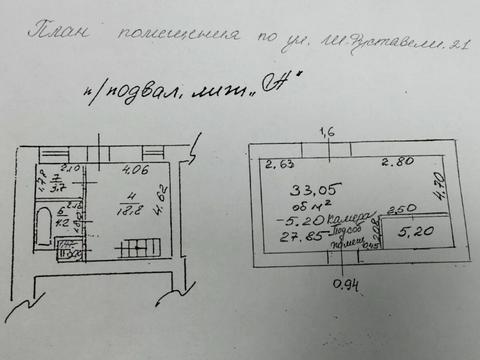 План помещения по ул. Ш.Руставели. 21
п/подвал. лит. „Я"
2.10
4.06
1.78
7
3.7
4
18.8
4.62
6
4.2
2.16
1,6
2.63
2.80
33,05
об м²
4.70
-5.20 камера
27.85
Подсоб
помещ
2.50
2.08
5.20
0.45
0.94